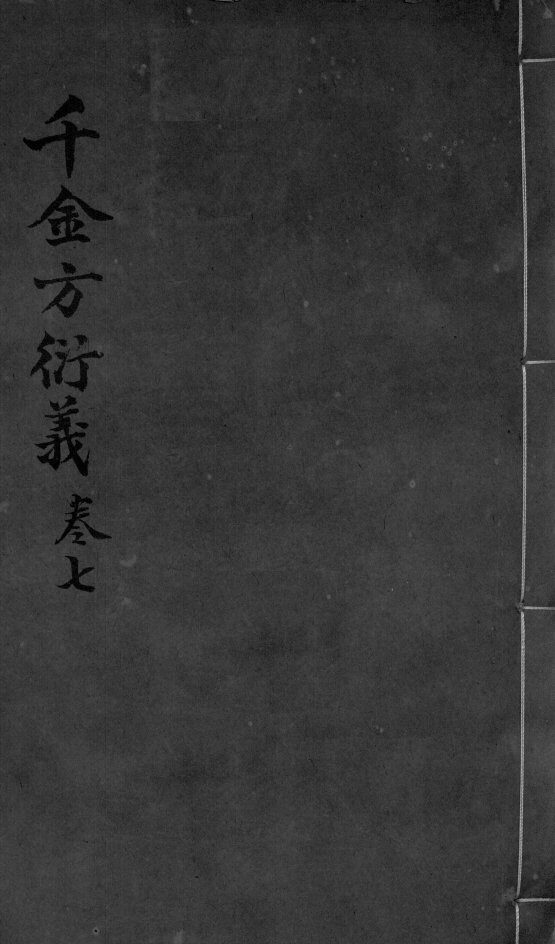 千金方衍義 卷七